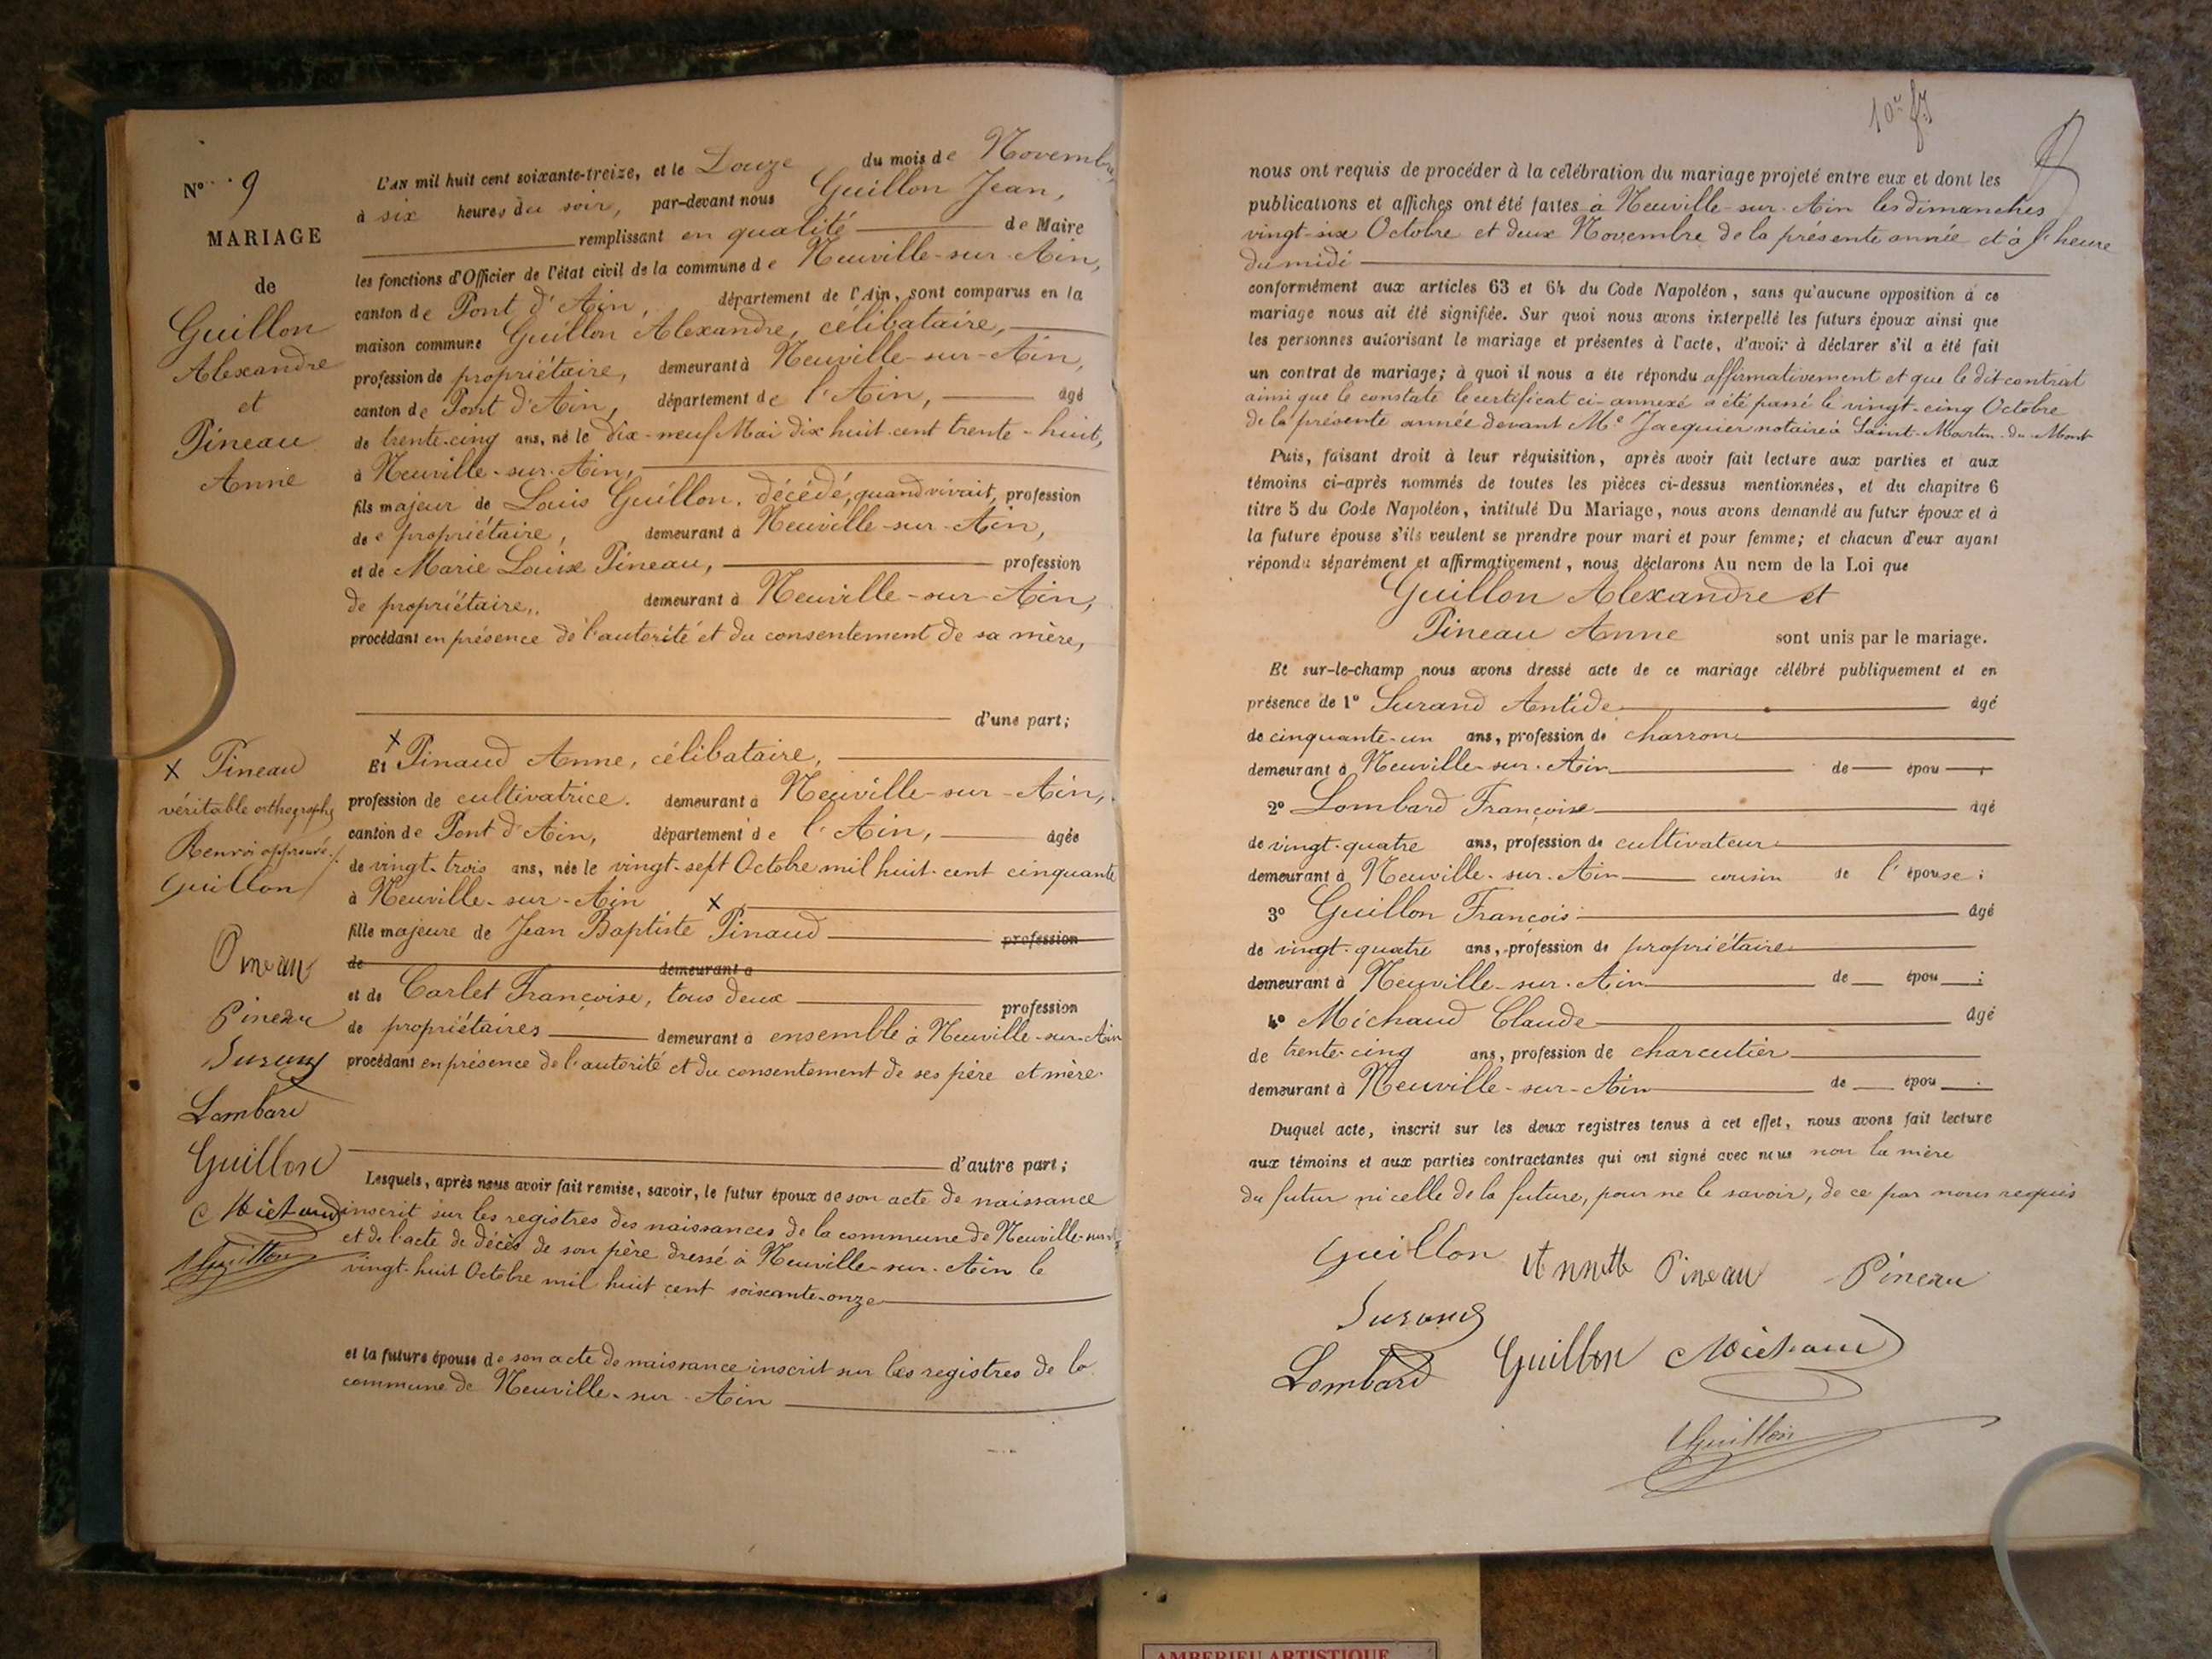 N° 9
MARIAGE
de
Guillon
Alexandre
et
Pineau
Anne
L'AN mil huit cent soixante-treize, et le Douze du mois de Novembre
à six heures du soir, par-devant nous Guillon Jean,
remplissant en qualité de Maire
les fonctions d'Officier de l'état civil de la commune de Neuville-sur-Ain,
canton de Pont d'Ain, département de l'Ain, sont comparus en la
maison commune Guillon Alexandre, célibataire,
profession de propriétaire, demeurant à Neuville-sur-Ain,
canton de Pont d'Ain, département de l'Ain, âgé
de trente-cinq ans, né le dix-neuf Mai dix huit-cent trente-huit,
à Neuville-sur-Ain,
fils majeur de Louis Guillon, décédé, quand vivait, profession
de propriétaire, demeurant à Neuville-sur-Ain,
et de Marie Louise Pineau, profession
de propriétaire, demeurant à Neuville-sur-Ain,
procédant en présence de l'autorité et du consentement de sa mère,
d'une part;
X Pineau
véritable orthographe
Renvoi approuvé
Guillon
Pineau
Pineau
Surand
Lombard
Guillon
C Michaud
Guillon
X
Et Pinaud Anne, célibataire,
profession de cultivatrice. demeurant à Neuville-sur-Ain,
canton de Pont d'Ain, département de l'Ain, âgée
de vingt-trois ans, née le vingt-sept Octobre mil huit-cent cinquante
à Neuville-sur-Ain X
fille majeure de Jean Baptiste Pinaud profession
de demeurant à
et de Carlet Françoise, tous deux profession
de propriétaires demeurant à ensemble à Neuville-sur-Ain
procédant en présence de l'autorité et du consentement de ses père et mère.
d'autre part;
Lesquels, après nous avoir fait remise, savoir, le futur époux de son acte de naissance
inscrit sur les registres des naissances de la commune de Neuville-sur-
et de l'acte de décès de son père dressé à Neuville-sur-Ain le
vingt-huit Octobre mil huit cent soixante-onze
et la future épouse de son acte de naissance inscrit sur les registres de la
commune de Neuville-sur-Ain
nous ont requis de procéder à la célébration du mariage projeté entre eux et dont les
publications et affiches ont été faites à Neuville-sur-Ain les dimanches
vingt-six Octobre et deux Novembre de la présente année et à l'heure
du midi
conformément aux articles 63 et 64 du Code Napoléon, sans qu'aucune opposition à ce
mariage nous ait été signifiée. Sur quoi nous avons interpellé les futurs époux ainsi que
les personnes autorisant le mariage et présentes à l'acte, d'avoir à déclarer s'il a été fait
un contrat de mariage; à quoi il nous a été répondu affirmativement et que le dit contrat
ainsi que le constate le certificat ci-annexé a été passé le vingt-cinq Octobre
de la présente année devant Me Jacquier notaire à Saint-Martin-du-Mont
Puis, faisant droit à leur réquisition, après avoir fait lecture aux parties et aux
témoins ci-après nommés de toutes les pièces ci-dessus mentionnées, et du chapitre 6
titre 5 du Code Napoléon, intitulé Du Mariage, nous avons demandé au futur époux et à
la future épouse s'ils veulent se prendre pour mari et pour femme; et chacun d'eux ayant
répondu séparément et affirmativement, nous déclarons Au nom de la Loi que
Guillon Alexandre et
Pineau Anne sont unis par le mariage.
Et sur-le-champ nous avons dressé acte de ce mariage célébré publiquement et en
présence de 1° Surand Antide âgé
de cinquante-un ans, profession de charron
demeurant à Neuville-sur-Ain de épou
2° Lombard François âgé
de vingt-quatre ans, profession de cultivateur
demeurant à Neuville-sur-Ain cousin de l'épouse;
3° Guillon François âgé
de vingt-quatre ans, profession de propriétaire
demeurant à Neuville-sur-Ain de épou ;
4° Michaud Claude âgé
de trente-cinq ans, profession de charcutier
demeurant à Neuville-sur-Ain de épou .
Duquel acte, inscrit sur les deux registres tenus à cet effet, nous avons fait lecture
aux témoins et aux parties contractantes qui ont signé avec nous non la mère
du futur ni celle de la future, pour ne le savoir, de ce par nous requis
Guillon Annette Pineau Pineau
Surand
Lombard Guillon Michaud
Guillon
AMBERIEU ARTISTIQUE